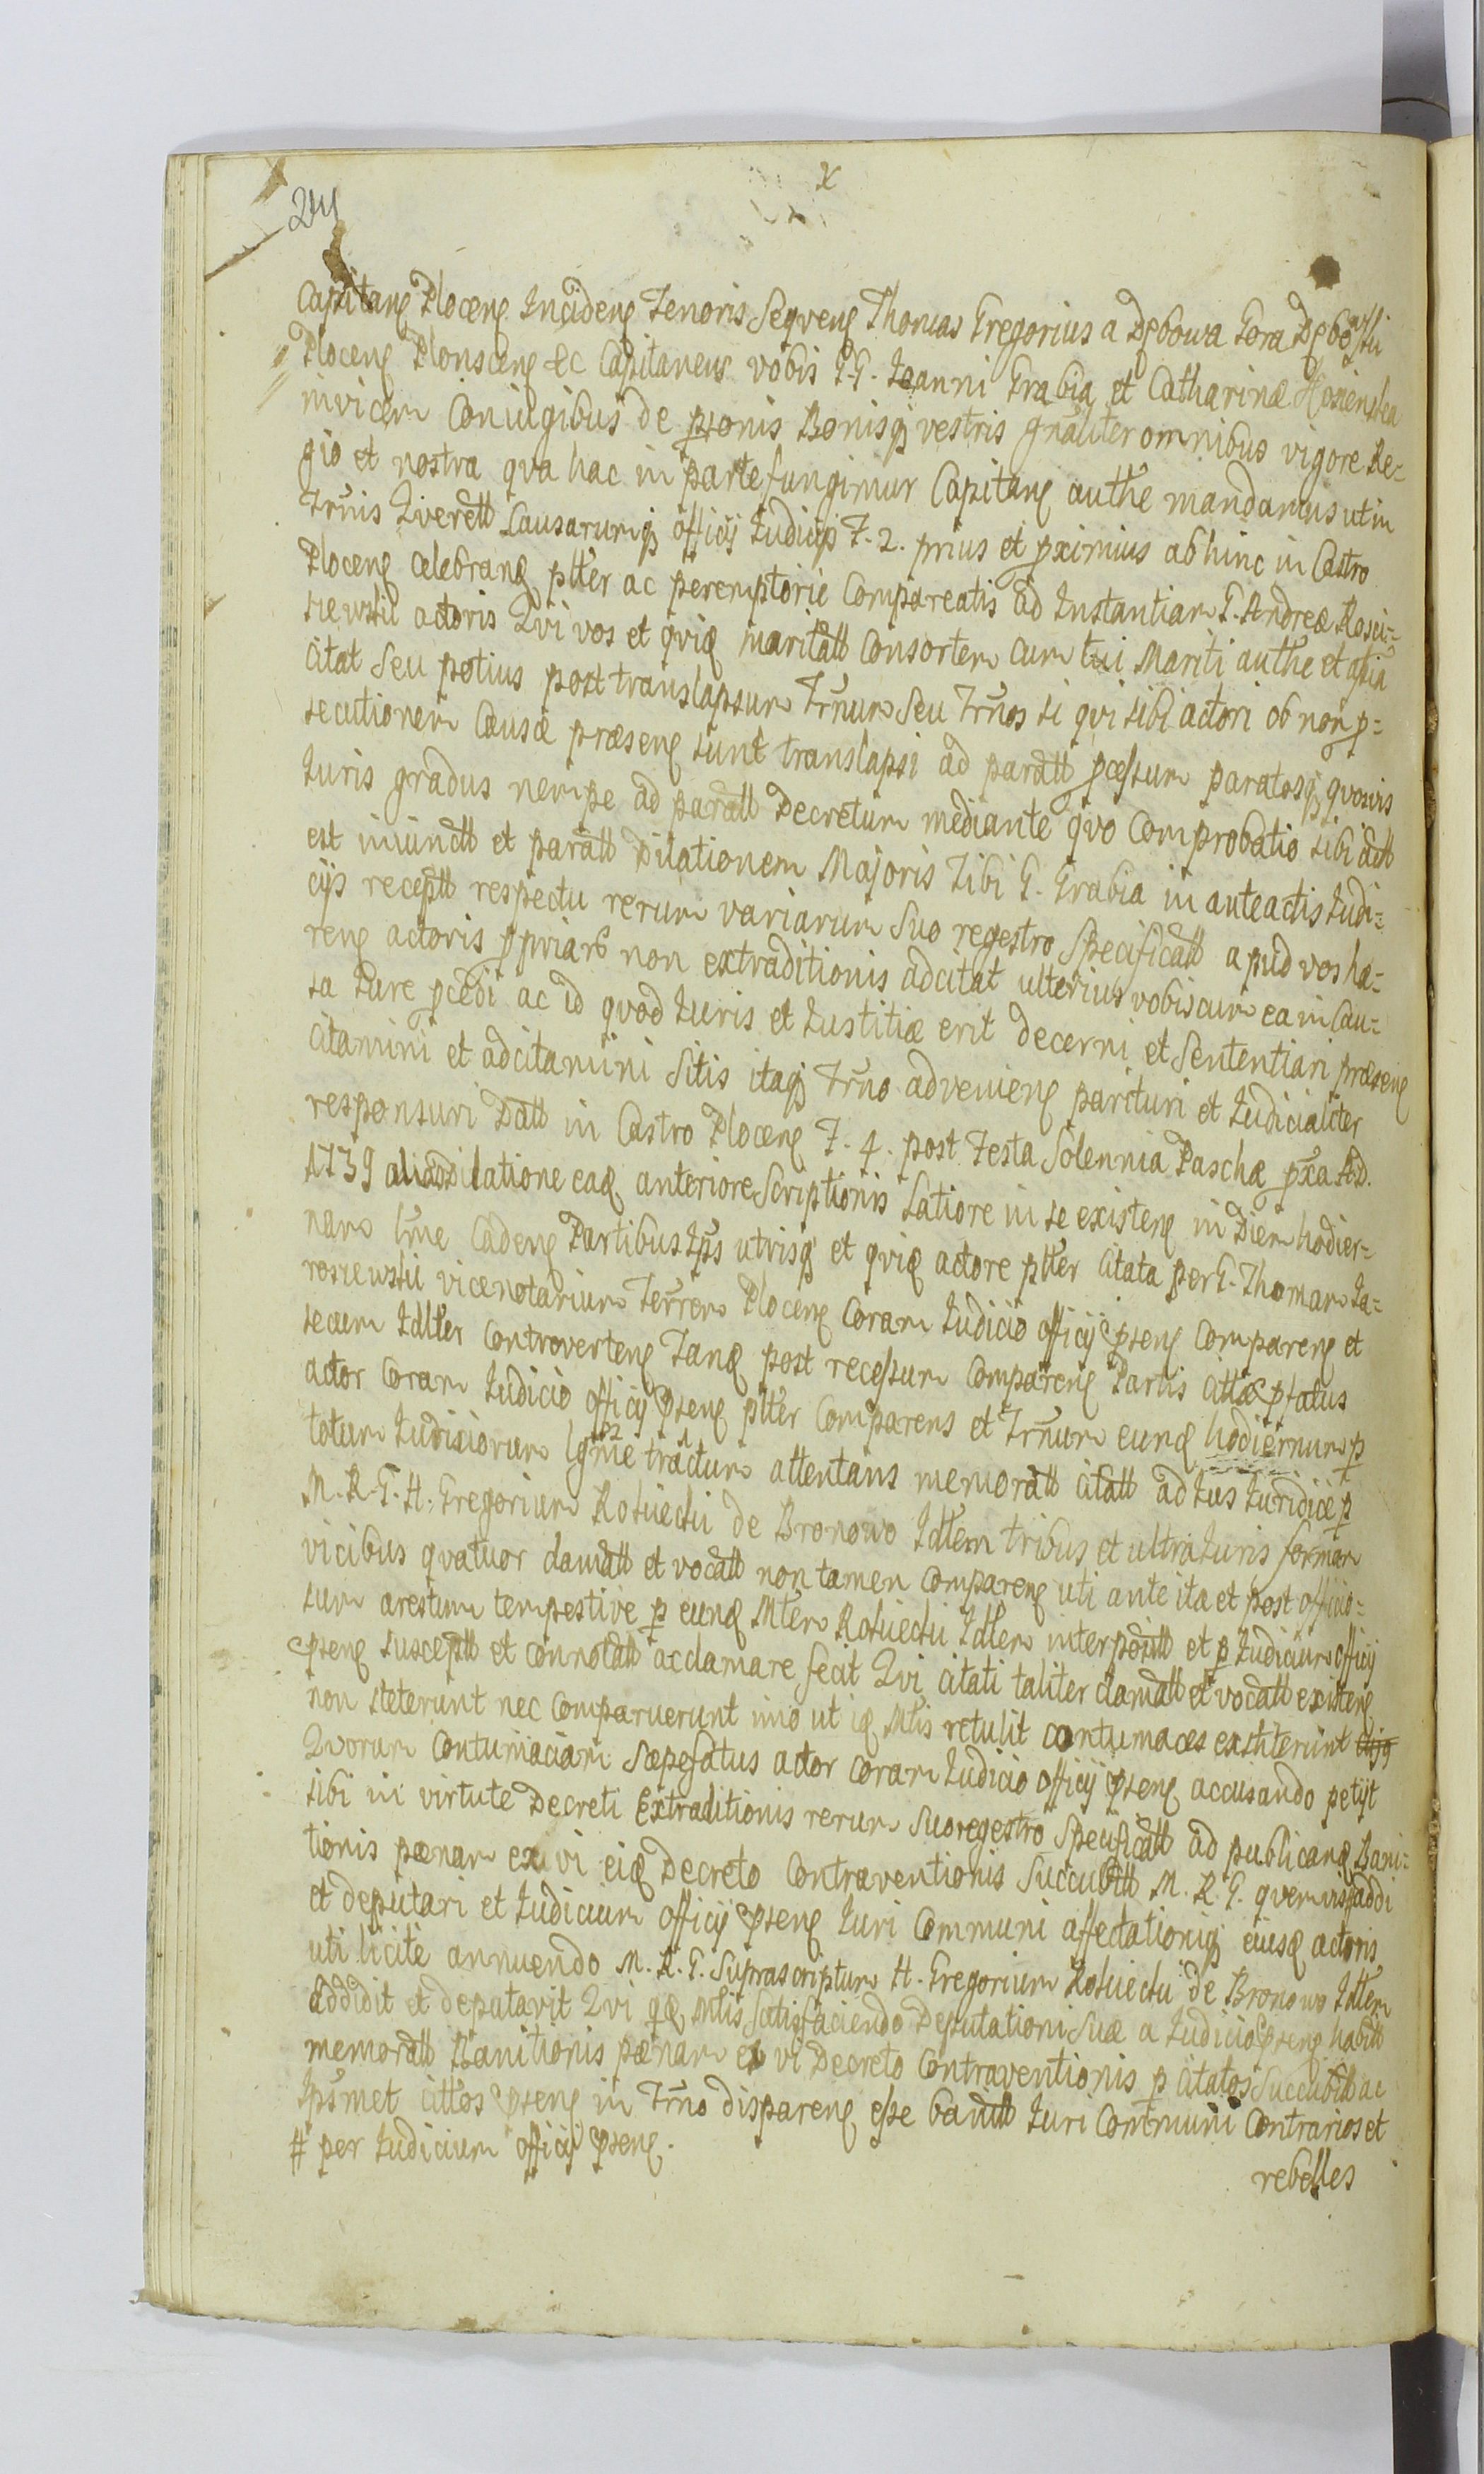 x
244
Capitanę Plocenę Incidenę Tenoris Seqvenę Thomas Gregorius a Dębowa Gora Dębowski
Plocenę Plonscenę &c Capitaneus vobis G.G. Ioanni Grabia et Catharinæ
invicem Coniugibus de psonis Bonisq vestris gnaliter omnibus vigore Re=
gio et nostra qva hac in parte fungimur Capitanę authe mandamus ut in
Trnis Qverell Causarumq officij Iudicijs F. 2. prius et pximius ab hinc in Castro
Plocenę celebranę ptter ac peremptorie Compareatis ad Instantiam G. Andreæ Rosci=
szewski actoris Qvi vos et qvię maritall Consortem cum tui Mariti authe et assia
citat Seu potius post translapsum Trnum Seu Trnos si qvi sibi actori ob non p=
secutionem Causæ præsenę sunt translapsi ad paratt pcessum paratosq qvosvis
Iuris gradus nempe ad paratt Decretum mediante qvo Comprobatio sibi actt
est iniunctt et paratt Dilationem Majoris Tibi G. Grabia in anteactis Iudi=
cijs receptt respectu rerum variarum Suo regestro Specificatt apud vos ha=
renę actoris ppriar non extraditionis adcitat ulterius vobiscum ea in Cau=
sa Iure pcedi ac id qvod Iuris et Iustitiæ erit decerni et Sententiari præsenę
citamini et adcitamini Sitis itaq Trno advenienę parituri et Iudicialiter
responsuri Datt in Castro Plocenę F. 4. post Festa Solennia Paschæ pxa AD.
1739 dilatione eaę anteriore Scriptionis Latiore in se existenę in Diem hodier=
nam lme Cadenę Partibus Ips utrisq et qvię actore ptter Citata per G. Thomam Ja=
roszewski vicenotarium Terrem Plocenę Coram Iudicio officij psenę Comparenę et
secum Idtter Controvertenę Tanę post recessum Comparenę Partis Cittæ pfatus
actor Coram Iudicio officij psenę ptter Comparens et Trnum eunę hodiernum p
totum Iudiciorum lgme tractum attentans memoratt Citatt ad Ius Iuridice p
M. R. G. H. Gregorium Kosuiecki de Bronowo Idtem tribus et ultra Iuris formam
vicibus qvatuor clamatt et vocatt non tamen Comparenę uti ante ita et post officio=
sum arestum tempestive p eunę Mtem Kosuiecki Idtem interpositt et p Iudicium officij
psenę susceptt et connotatt acclamare fecit Qvi citati taliter clamatt et vocatt existenę
non steterunt nec Comparuerunt imo ut ię Mtis retulit contumaces exstiterunt
Qvorum Contumaciam Sæpefatus actor Coram Iudicio officij psenę accusando petijt
sibi in virtute Decreti Extraditionis rerum Suo regestro Specificatt ad publicanę Bani=
tionis pænam ex vi eię Decreto Contraventionis Succubitt M. R. G. qvemvis addi
et deputari et Iudicium officij psenę Iuri Communi affectationiq eiusę actoris
uti licite annuendo M. R. G. Suprascriptum H. Gregorium Kosuiecki de Bronowo Idtem
addidit et deputavit Qvi qę Mtis Satisfaciendo Deputationi Suæ a Iudicio psenę habitt
memoratt Banitionis pænam ex vi Decreto Contraventionis p Citatos Succubitt ac
Ipsmet cittos psenę in Trno disparenę esse banitt Iuri Communi Contrarios et
# per Iudicium officij psenę.
rebelles